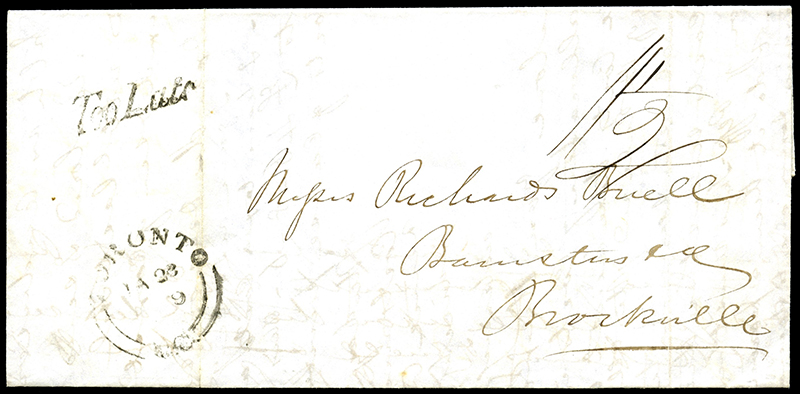 Too Late
11½
Messrs Richards & Buell
Barristers &c
Brockville
TORONTO
JA 23
9
U.C.